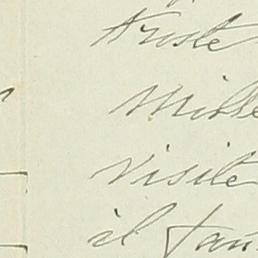 triste
Mill
visite
il fau